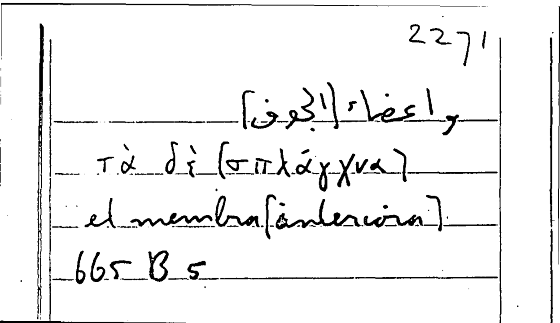 2271
واعضاء [الجوف]
τὰ δὲ [σπλάγχνα]
et membra [anteriora]
665 B 5